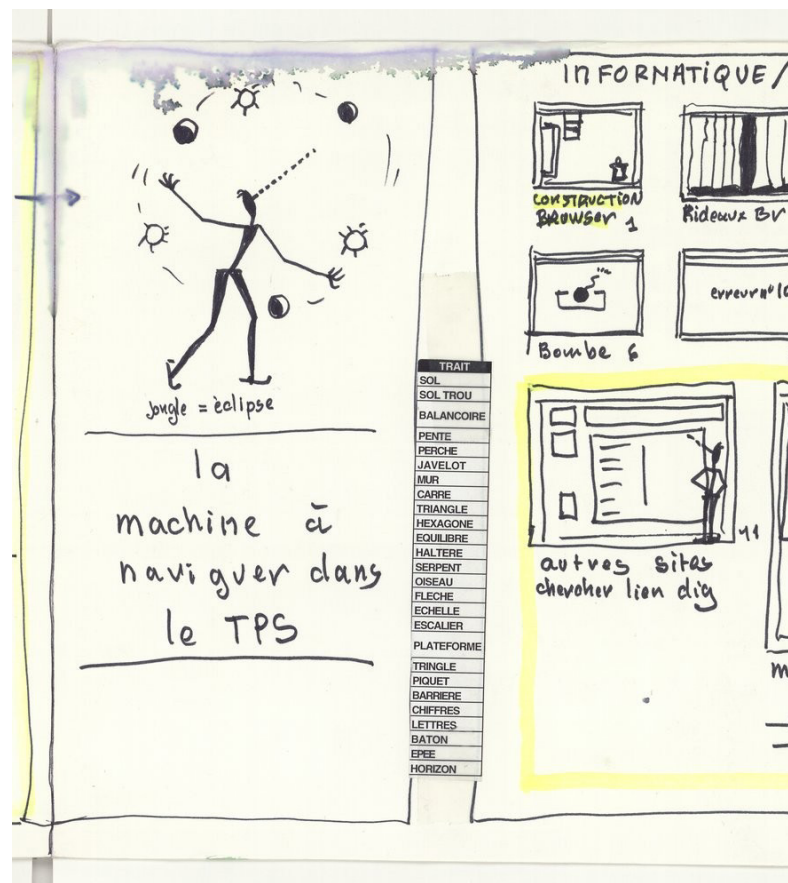 jongle = èclipse
la
machine à
naviguer dans
le TPS
TRAIT
SOL
SOL TROU
BALANCOIRE
PENTE
PERCHE
JAVELOT
MUR
CARRE
TRIANGLE
HEXAGONE
EQUILIBRE
HALTERE
SERPENT
OISEAU
FLECHE
ECHELLE
ESCALIER
PLATEFORME
TRINGLE
PIQUET
BARRIERE
CHIFFRES
LETTRES
BATON
EPEE
HORIZON
INFORMATIQUE/
CONSTRUCTION
BROWSER 1
Rideaux Br
erreur n° 10
Bombe 6
11
autres sites
chercher lien dig
m